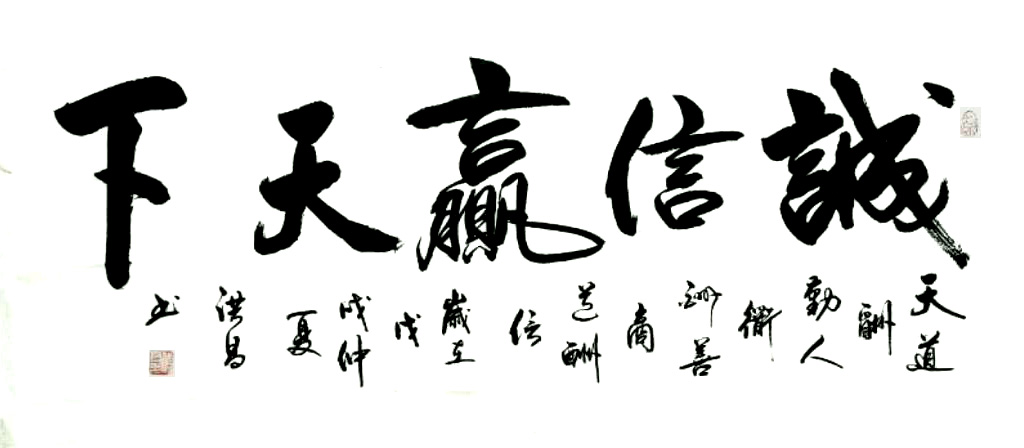 誠信贏天下
天道酬勤人衜酬善商道酬信歲在戊戌仲夏洪昌书